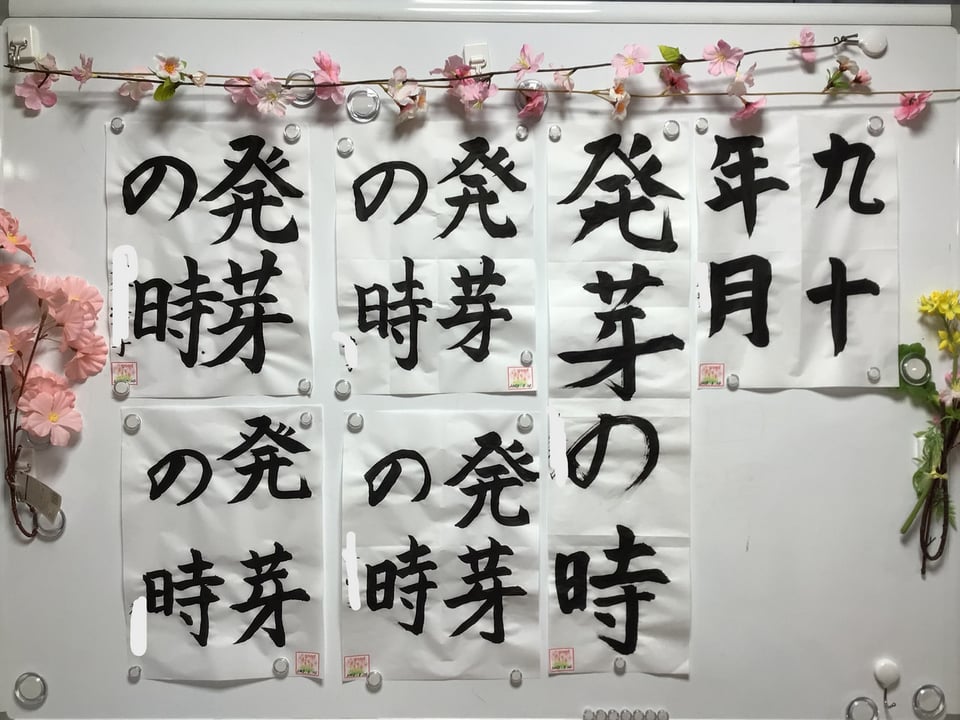 九十
年月
発芽の時
発芽
の時
発芽
の時
発芽
の時
発芽
の時